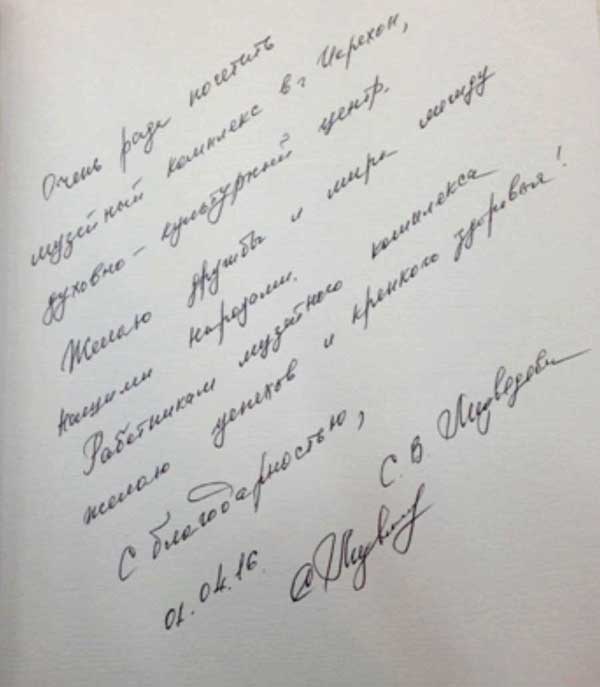 Очень рада посетить
музейный комплекс в г Иерехон,
духовно-культурный центр.
Желаю дружбы и мира между
нашими народами.
Работникам музейного комплекса
желаю успехов и крепкого здоровья!
С благодарностью,
С. В. Медведева
01.04.16.